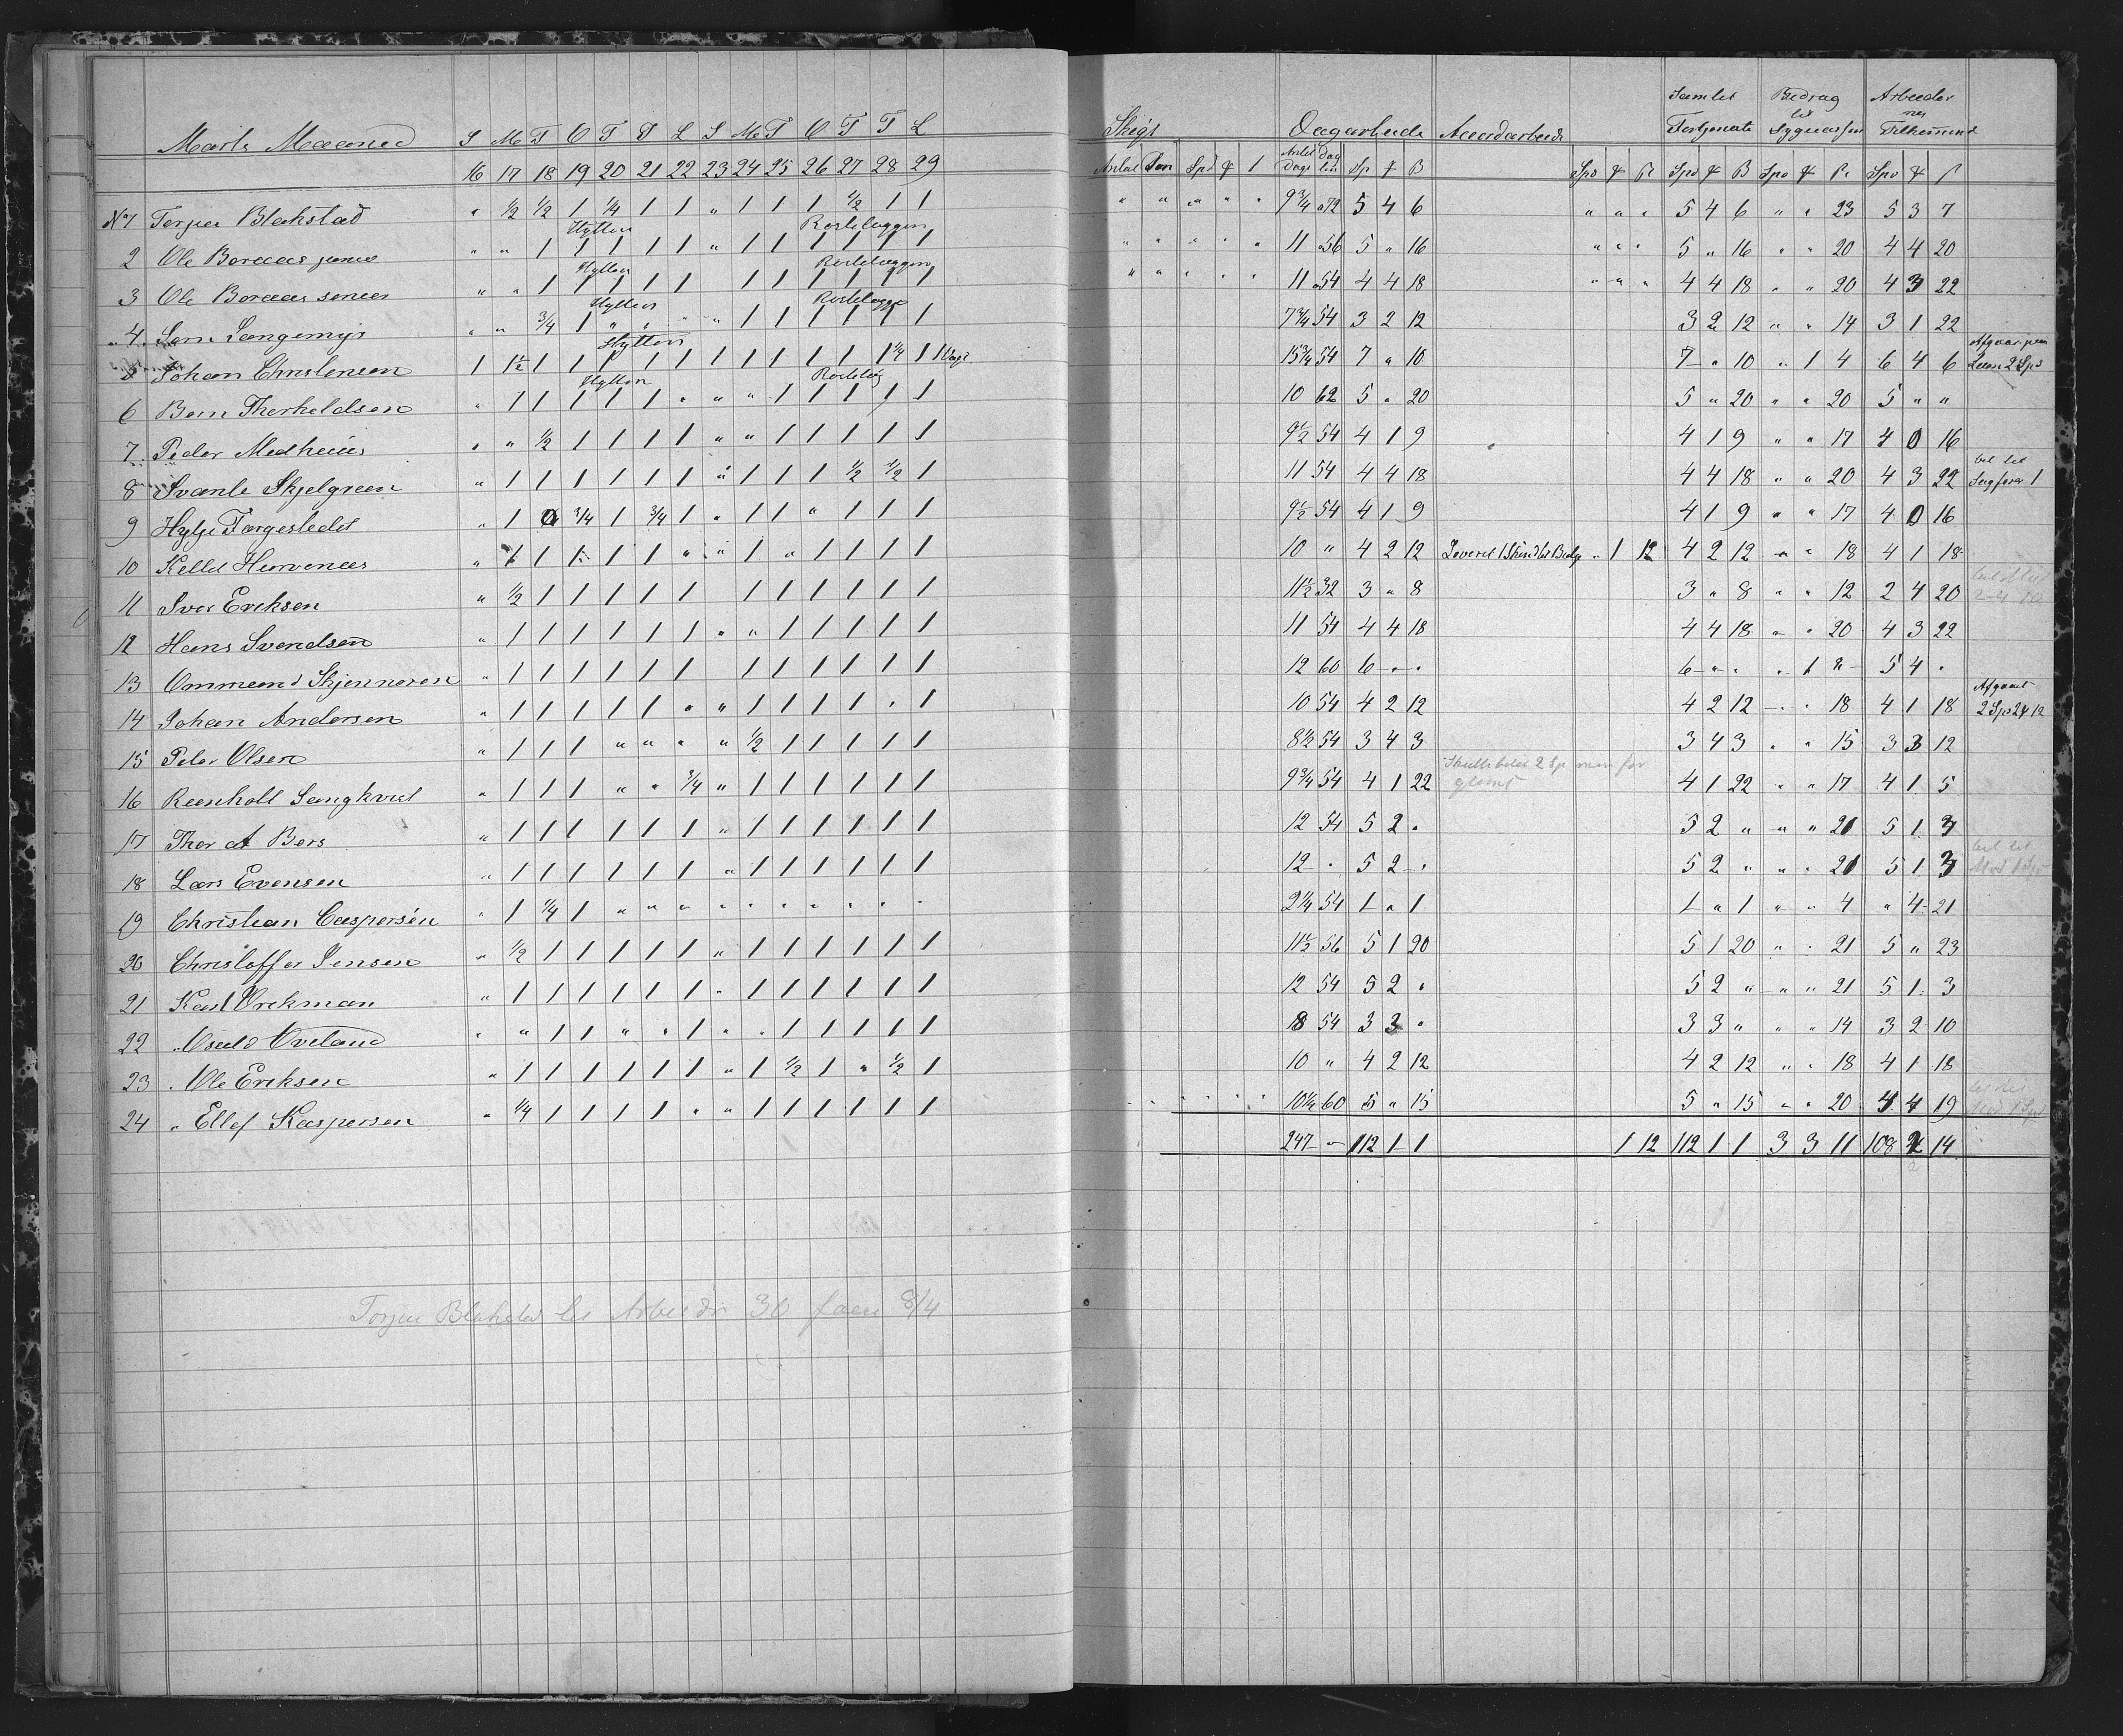 Marts Maaned S M T O T F L S M T O T F L
16 17 18 19 20 21 22 23 24 25 26 27 28 29
Skigt Dagarbeide Accordarbeide Samlet Fortjeneste Bidrag til Sygekassen Arbeidernes Tilkommende
Antal Løn Spd Antal Dage Dag løn Sp B Spd Spd B Spd Spd
No 1 Torjer Blakstad " ½ ½ 1 ¼ 1 1 " 1 1 1 ½ 1 1 9¾ 72 5 4 6 " " " 5 4 6 " " 23 5 3 7
Hytten Rosteloggen
2 Ole Boraas junio " " 1 1 1 1 1 " 1 1 1 1 1 1 11 56 5 " 16 " " " 5 " 16 " " 20 4 4 20
Hytten Rosteloggen
3 Ole Boraas senior " " 1 1 1 1 1 1 1 1 1 1 1 11 54 4 4 18 " " " 4 4 18 " " 20 4 3 22
Hytten
4 " " ¾ 1 " " " " 1 1 1 1 1 1 7¾ 54 3 2 12 3 2 12 " " 14 3 1 22
Hytten
5 Johan Christensen 1 1½ 1 1 1 1 1 1 1 1 1 1 1¼ 1 15¾ 54 7 " 10 7 " 10 " 1 4 6 4 6 Laan 2 Spd
Hytten
6 Bern Therkeldsen " 1 1 1 1 1 " " " 1 1 1 1 1 10 62 5 " 20 5 " 20 " " 20 5 " "
7 Peder Medhuus " " ½ 1 1 1 1 " " 1 1 1 1 1 9½ 54 4 1 9 4 1 9 " " 17 4 0 16
8 Svante Skjelgreen " 1 1 1 1 1 1 " 1 1 1 ½ ½ 1 11 54 4 4 18 4 4 18 " " 20 4 3 22
9 " 1 0 ¾ 1 ¾ 1 " 1 1 " 1 1 1 9½ 54 4 1 9 4 1 9 " " 17 4 0 16
10 Kelld Hurvenaas " 1 1 1 1 1 " " 1 " 1 1 1 1 10 " 4 2 12 Leveret 1 Skind til Bælg " 1 12 4 2 12 " " 18 4 1 18
11 Iver Eriksen " ½ 1 1 1 1 1 1 1 1 1 1 1 11½ 32 3 " 8 3 " 8 " " 12 2 4 20
12 Hans Svendsen " 1 1 1 1 1 1 " " 1 1 1 1 1 11 54 4 4 18 4 4 18 " " 20 4 3 22
13 Ommund Skjennoren " 1 1 1 1 1 1 1 1 1 1 1 1 12 60 6 " " 6 " " " 1 " 5 4 "
14 Johan Andersen " 1 1 1 1 1 " " 1 1 1 1 " 1 10 54 4 2 12 4 2 12 " " 18 4 1 18
15 Peder Olsen " 1 1 1 " " " " ½ 1 1 1 1 1 8½ 54 3 4 3 3 4 3 " " 15 3 3 12
16 Reenholt Langkvist " 1 1 1 " " ¾ " 1 1 1 1 1 1 9¾ 54 4 1 22 4 1 22 " " 17 4 1 5
17 Thor at Bers " 1 1 1 1 1 1 " 1 1 1 1 1 1 12 54 5 2 " 5 2 " " " 21 5 1 3
18 Lars Evensen " 1 1 1 1 1 1 " 1 1 1 1 1 1 12 " 5 2 " 5 2 " " " 21 5 1 3
19 Christian Caspersen " 1 ¼ 1 " " " " " " " " " " 2¼ 54 1 " 1 1 " 1 " " 4 " 4 21
20 Christoffer Jensen " ½ 1 1 1 1 1 " 1 1 1 1 1 1 11½ 56 5 1 20 5 1 20 " " 21 5 " 23
21 Karl Vrekman " 1 1 1 1 1 1 " 1 1 1 1 1 1 12 54 5 2 " 5 2 " " " 21 5 1 3
22 Oveland " " 1 1 " " 1 " " 1 1 1 1 1 8 54 3 3 " 3 3 " " " 14 3 2 10
23 Ole Eriksen " 1 1 1 1 1 1 " 1 ½ 1 " ½ 1 10 " 4 2 12 4 2 12 " " 18 4 1 18
24 Ellef Kaspersen " ¼ 1 1 1 1 " " 1 1 1 1 1 1 10¼ 60 5 " 15 5 " 15 " " 20 4 4 19
247 " 112 1 1 1 12 112 1 1 3 3 11 108 2 14
Torjer Blakstad til Arbeide 30 8/4